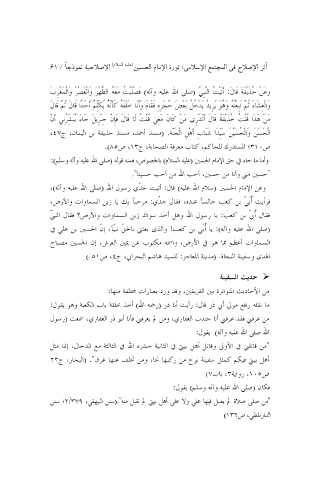 أثر الإصلاح في المجتمع الإسلامي؛ ثورة الإمام الحسين (عليه السلام) الإصلاحية نموذجاً / ٦١
وَعَنْ حُذَيْفَةَ قَالَ: أَتَيْتُ النَّبِيَّ (صلى الله عليه وآله) فَصَلَّيْتُ مَعَهُ الظُّهْرَ وَالْعَصْرَ وَالْمَغْرِبَ
وَالْعِشَاءَ ثُمَّ تَبِعْتُهُ وَهُوَ يُرِيدُ يَدْخُلُ بَعْضَ حُجَرِهِ فَقَامَ وَأَنَا خَلْفَهُ كَأَنَّهُ يُكَلِّمُ أَحَدًا قَالَ ثُمَّ قَالَ
مَنْ هَذَا قُلْتُ حُذَيْفَةُ قَالَ أَتَدْرِي مَنْ كَانَ مَعِي قُلْتُ لَا قَالَ فَإِنَّ جِبْرِيلَ جَاءَ يُبَشِّرُنِي أَنَّ
الْحَسَنَ وَالْحُسَيْنَ سَيِّدَا شَبَابِ أَهْلِ الْجَنَّةِ. (مسند أحمد، مسند حذيفة بن اليمان، ج٤٧،
ص٣١٠؛ المستدرك للحاكم، كتاب معرفة الصحابة، ج١٣، ص٨٥).
وأما ما جاء في حق الإمام الحسين (عليه السلام) بالخصوص، فمنه قوله (صلى الله عليه وآله وسلم):
"حسين مني وأنا من حسين، أحب الله من أحب حسيناً".
وعن الإمام الحسين (سلام الله عليه) قال: أتيت جدّي رسول الله (صلى الله عليه وآله)،
فرأيت أُبيّ بن كعب جالساً عنده، فقال جدّي: مرحباً بك يا زين السماوات والأرض،
فقال أُبيّ بن كعب: يا رسول الله وهل أحد سواك زين السماوات والأرض؟ فقال النبيّ
(صلى الله عليه وآله): يا أُبي بن كعب! والذي بعثني بالحقّ نبيّاً، إنّ الحسين بن علي في
السماوات أعظم مما هو في الأرض، واسمه مكتوب عن يمين العرش، إن الحسين مصباح
الهدى وسفينة النجاة. (مدينة المعاجز: للسيد هاشم البحراني، ج٤، ص٥١).
حديث السفينة
من الأحاديث المتواترة بين الفريقين، وقد ورد بعبارات مختلفة منها:
ما نقله رافع مولى أبي ذر قال: رأيت أبا ذر (رحمه الله) آخذ بحلقة باب الكعبة وهو يقول:
من عرفني فقد عرفني أنا جندب الغفاري، ومن لم يعرفني فأنا أبو ذر الغفاري، سمعت (رسول
الله صلى الله عليه وآله) يقول:
"من قاتلني في الأولى وقاتل أهل بيتي في الثانية حشره الله في الثالثة مع الدجال، إنما مثل
أهل بيتي فيكم كمثل سفينة نوح من ركبها نجا، ومن تخلف عنها غرق". (البحار، ج٢٣
ص١٠٥، رواية٣، باب٧)
فكان (صلى الله عليه وآله وسلم) يقول:
"من صلى صلاة لم يصل فيها علي ولا على أهل بيتي لم تقبل منه". (سنن البيهقي، ٢/٣٧٩؛ سنن
الدارقطني، ص١٣٦)